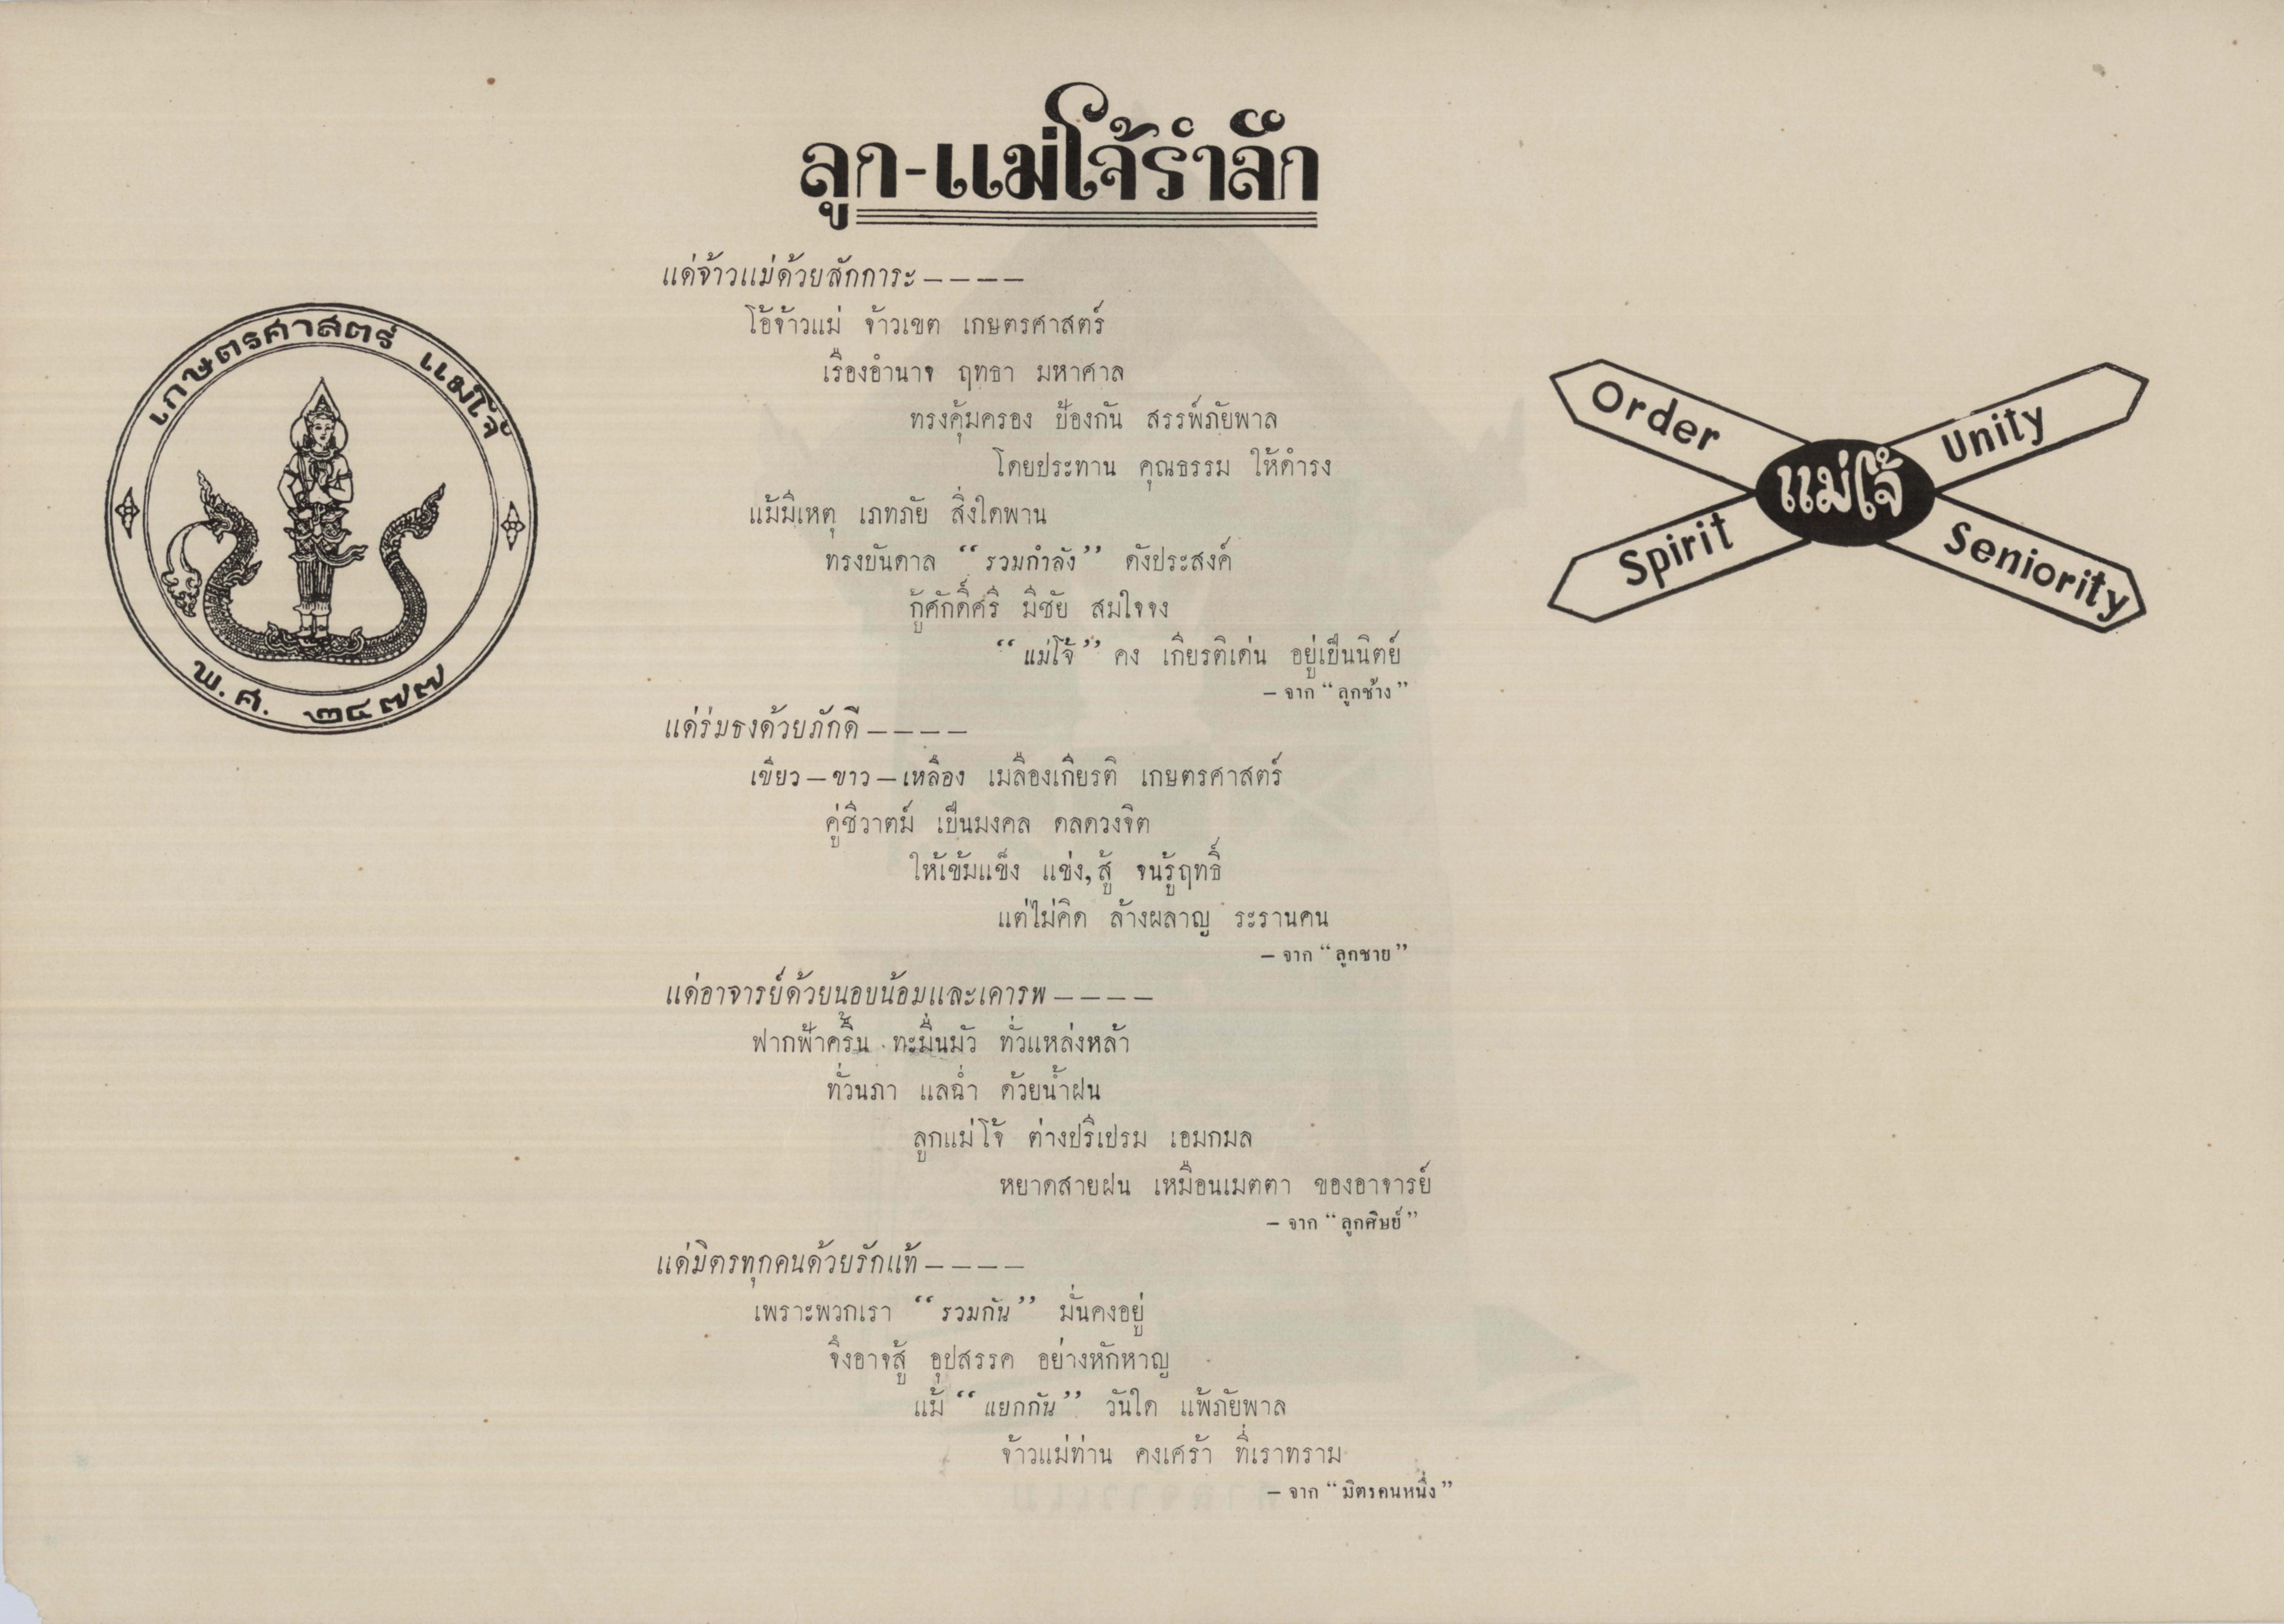 ลูก-แม่โจ้รำลึก
เกษตรศาสตร์ แม่โจ้
พ.ศ. ๒๔๗๗
แด่จ้าวแม่ด้วยสักการะ – – – –
โอ้จ้าวแม่ จ้าวเขต เกษตรศาสตร์
เรืองอำนาจ ฤทธา มหาศาล
ทรงคุ้มครอง ป้องกัน สรรพ์ภัยพาล
โดยประทาน คุณธรรม ให้ดำรง
แม้มีเหตุ เภทภัย สิ่งใดพาน
ทรงบันดาล “รวมกำลัง” ดังประสงค์
กู้ศักดิ์ศรี มีชัย สมใจจง
“แม่โจ้” คง เกียรติเด่น อยู่เป็นนิตย์
– จาก “ลูกช้าง”
แด่ร่มธงด้วยภักดี – – – –
เขียว – ขาว – เหลือง เมลืองเกียรติ เกษตรศาสตร์
คู่ชีวาตม์ เป็นมงคล ดลดวงจิต
ให้เข้มแข็ง แข่ง, สู้ จนรู้ฤทธิ์
แต่ไม่คิด ล้างผลาญ ระรานคน
– จาก “ลูกชาย”
แด่อาจารย์ด้วยนอบน้อมและเคารพ – – – –
ฟากฟ้าครึ้น ทะมื่นมัว ทั่วแหล่งหล้า
ทั่วนภา แลฉ่ำ ด้วยน้ำฝน
ลูกแม่โจ้ ต่างปรีเปรม เอมกมล
หยาดสายฝน เหมือนเมตตา ของอาจารย์
– จาก “ลูกศิษย์”
แด่มิตรทุกคนด้วยรักแท้ – – – –
เพราะพวกเรา “รวมกัน” มั่นคงอยู่
จึงอาจสู้ อุปสรรค อย่างหักหาญ
แม้ “แยกกัน” วันใด แพ้ภัยพาล
จ้าวแม่ท่าน คงเศร้า ที่เราทราม
– จาก “มิตรคนหนึ่ง”
Order
Unity
แม่โจ้
Spirit
Seniority